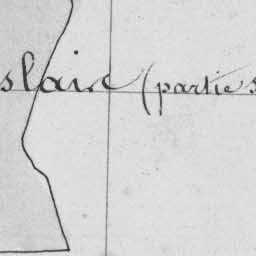 slaire (partie s